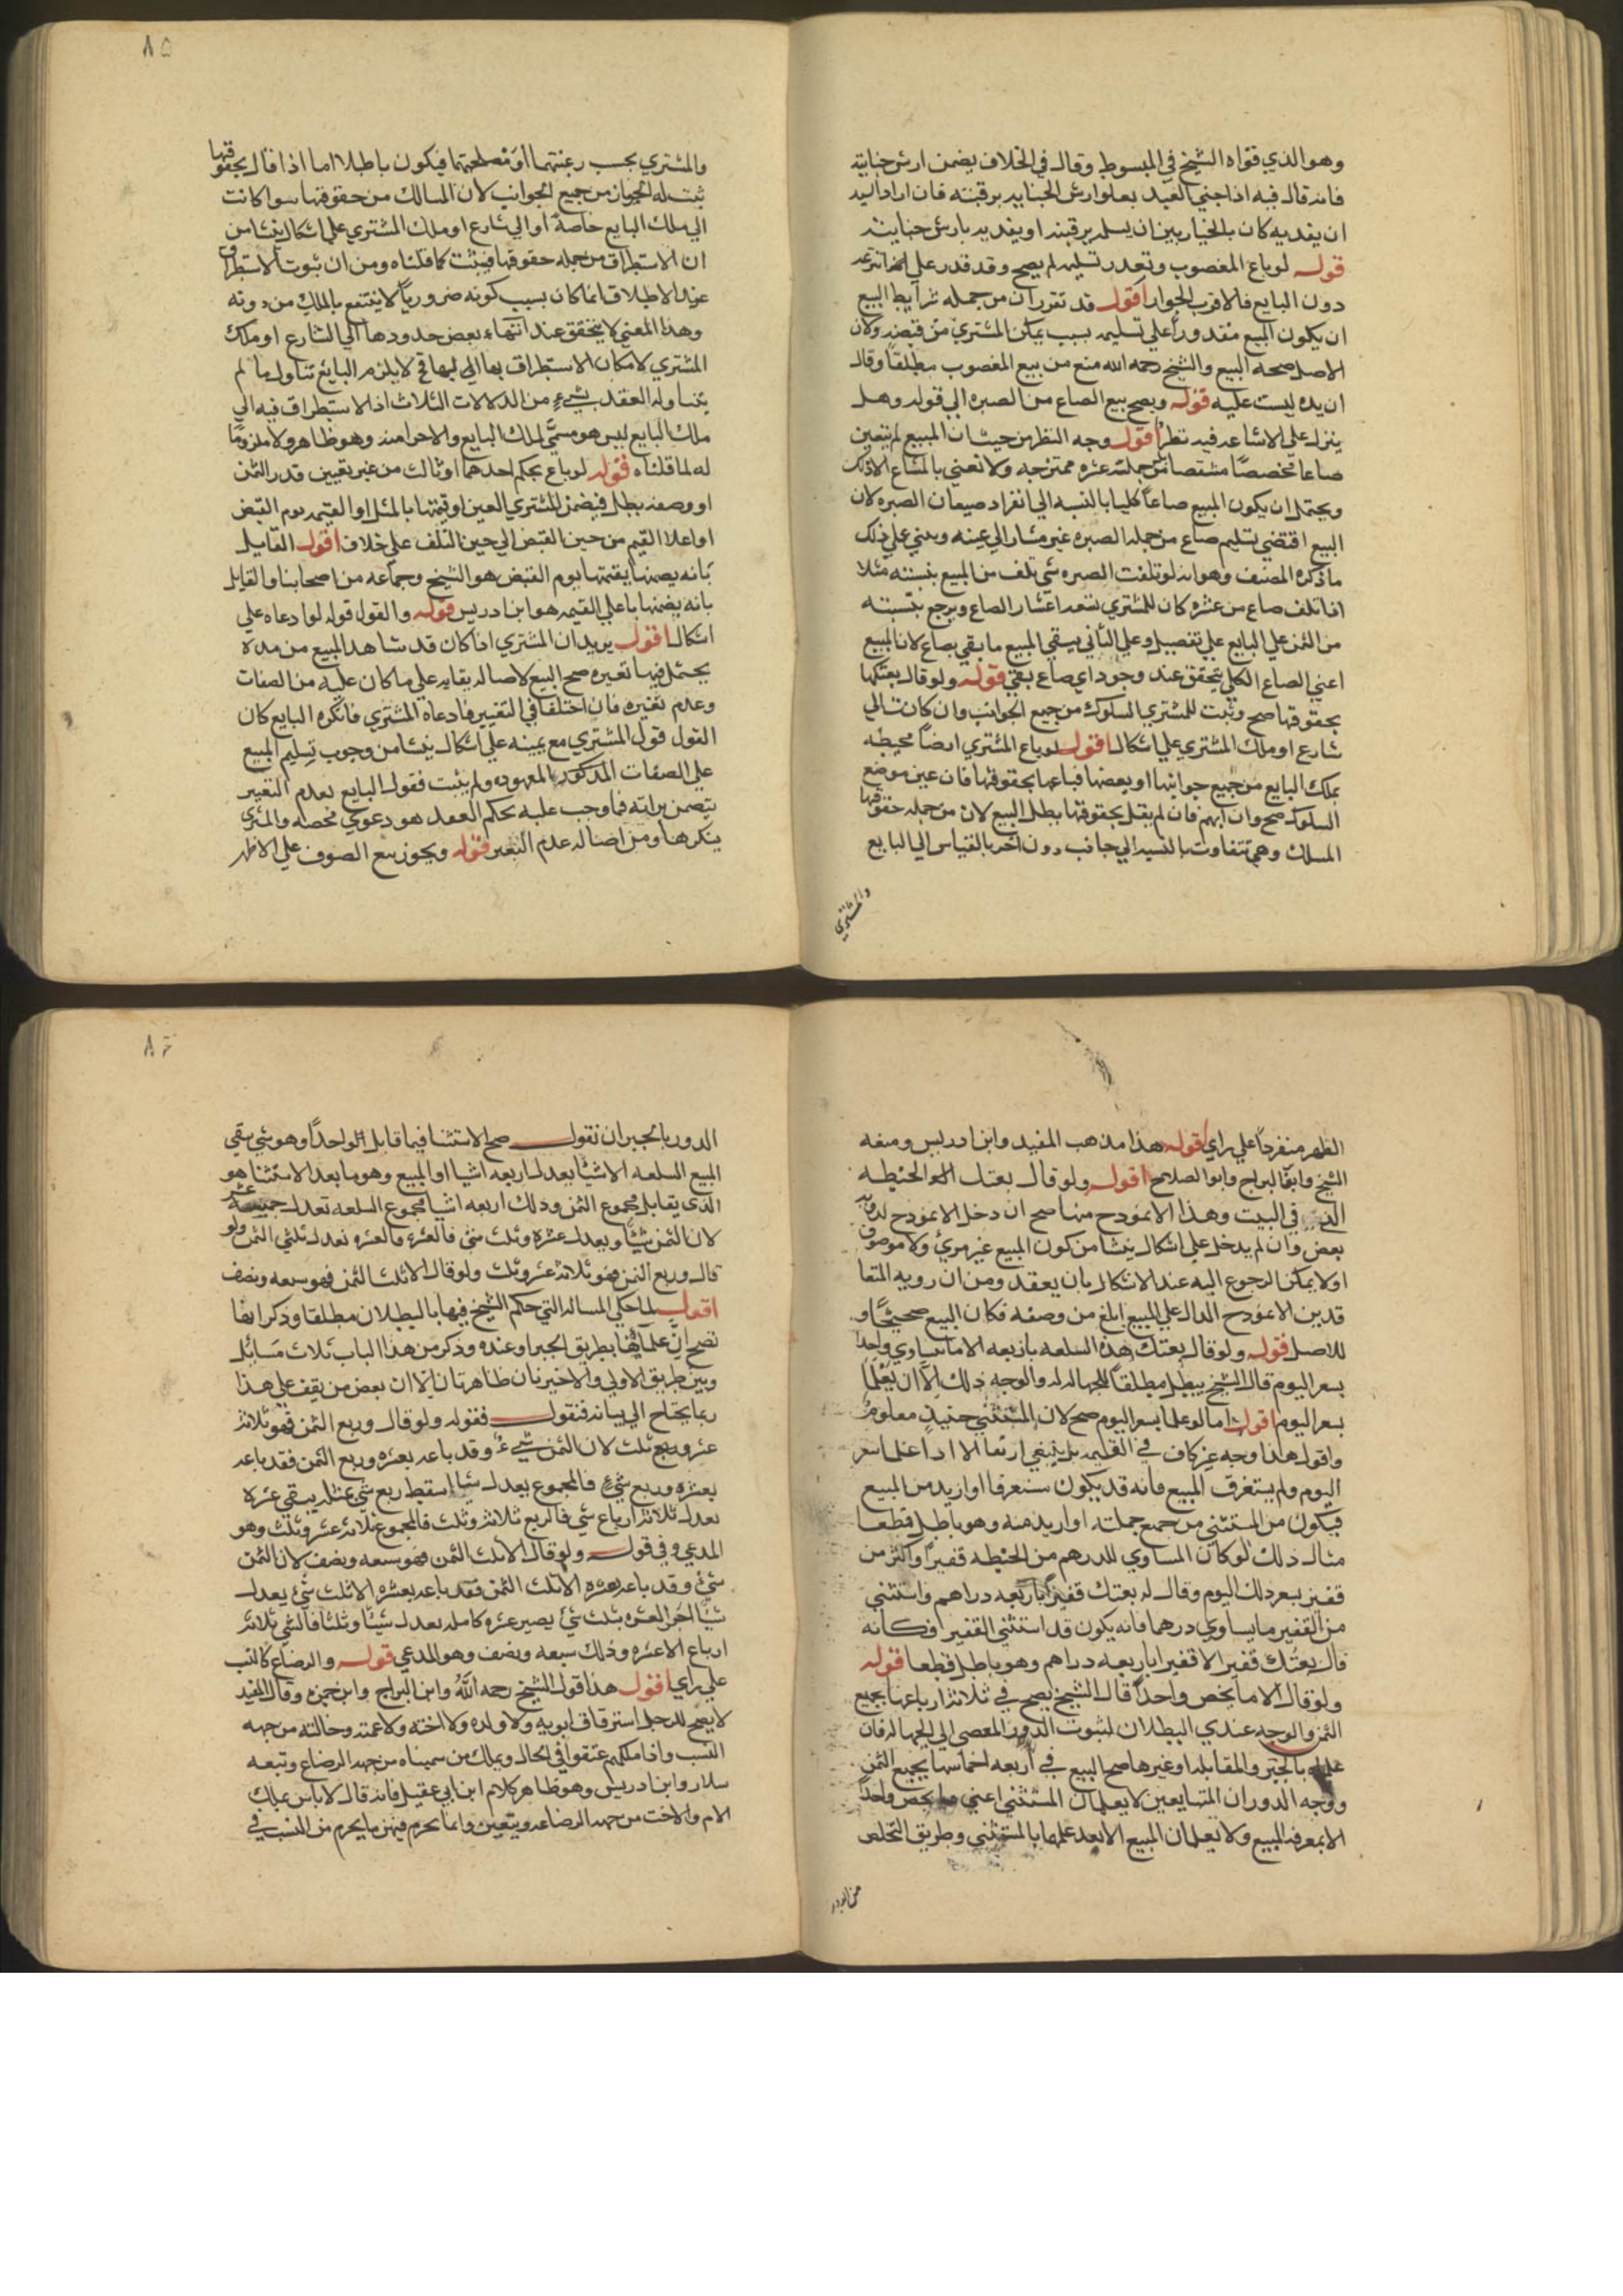 وهو الذي قواه الشيخ في المبسوط وقال في الخلاف يضمن ارش جنايته
فانه قال فيه اذا جني العبد تعلق ارش الجنايه برقبته فان اراد السيد
ان يفديه كان بالخيار بين ان يسلمه برقبته او يفديه بارش جنايته
قوله لو باع المغصوب وتعذر تسليمه لم يصح وقد قدر علي انتزاعه
دون البايع فالاقرب الجواز اقول قد تقرر ان من جمله شرايط البيع
ان يكون المبيع مقدورا علي تسليمه بسبب يمكن المشتري من قبضه ولان
الاصل صحه البيع والشيخ رحمه الله منع من بيع المغصوب مطلقا وقال
ان يده ليست عليه قوله ويصح بيع الصاع من الصبره الي قوله وهل
ينزل علي الاشاعه فيه نظر اقول وجه النظر من حيث ان المبيع لم يتعين
صاعا مخصصا مشخصا من جمله عشره ممتزجه ولا نعني بالمشاع الا ذلك
ويحتمل ان يكون المبيع صاعا كليا بالنسبه الي انفراد صيعان الصبره لان
البيع اقتضي تسليم صاع من جمله الصبره غير مشار الي عينه وبني علي ذلك
ما ذكره المصنف وهو انه لو تلفت الصبره شي تلف من المبيع بنسبته مثلا
اذا تلف صاع من عشره كان للمشتري تسعه اعشار الصاع ويرجع بنسبته
من الثمن علي البايع علي تفصيل وعلي الثاني يبقي المبيع ما بقي صاع لان المبيع
اعني الصاع الكلي يتحقق عند وجود اي صاع بقي قوله ولو قال بعتكها
بحقوقها صح وثبت للمشتري السلوك من جميع الجوانب وان كانت الي
شارع او ملك المشتري علي اشكال اقول لو باع المشتري ارضا محيطه
بملك البايع من جميع جوانبها او بعضها فباعها بحقوقها فان عين موضع
السلوك صح وان ابهم فان لم يقل بحقوقها بطل البيع لان من جمله حقوقها
المسلك وهي تتفاوت بالنسبه الي جانب دون اخر بالقياس الي البايع
والمشتري
٨٥
والمشتري بحسب رغبتهما او مصلحتهما فيكون باطلا اما اذا قال بحقوقها
ثبت له المجاز من جميع الجوانب لان المسالك من حقوقها سوا كانت
الي ملك البايع خاصه او الي شارع او ملك المشتري علي اشكال ينشا من
ان الاستطراق من جمله حقوقها فيثبت كما قلناه ومن ان ثبوت الاستطراق
عند الاطلاق انما كان بسبب كونه ضروريا لا ينتفع بالملك من دونه
وهذا المعني لا يتحقق عند انتهاء بعض حدودها الي الشارع او ملك
المشتري لامكان الاستطراق بها اليها فح لا يلزم البايع تناول ما لم
يتناوله العقد بشيء من الدلالات الثلاث اذ الاستطراق فيه الي
ملك البايع ليس هو مسمي لملك البايع ولا جزا منه وهو ظاهر ولا ملزوما
له لما قلناه قوله لو باع بحكم احدهما او ثالث من غير تعيين قدر الثمن
او وصفه بطل فيضمن المشتري العين او قيمتها بالمثل او القيمه يوم القبض
او اعلا القيم من حين القبض الي حين التلف علي خلاف اقول القايل
بانه يضمنها بقيمتها يوم القبض هو الشيخ وجماعه من اصحابنا والقايل
بانه يضمنها باعلي القيمه هو ابن ادريس قوله والقول قوله لو ادعاه علي
اشكال اقول يريد ان المشتري اذا كان قد شاهد المبيع من مده
يحتمل فيها تغيره صح البيع لاصاله بقايه علي ما كان عليه من الصفات
وعدم تغيره فان اختلفا في التغيير فادعاه المشتري فانكره البايع كان
القول قول المشتري مع يمينه علي اشكال ينشا من وجوب تسليم المبيع
علي الصفات المذكوره المعهوده ولم يثبت فقول البايع بعدم التغيير
يتضمن براته فما وجب عليه بحكم العقد هو دعوي محضه والمشتري
ينكرها ومن اصاله عدم التغير قوله ويجوز بيع الصوف علي الاظهر
الظهر منفردا علي راي قوله هذا مذهب المفيد وابن ادريس ومنعه
الشيخ وابن البراج وابو الصلاح اقول ولو قال بعتك الحنطه
في البيت وهذا الانموذج منها صح ان دخل الانموذج
بعض وان لم يدخل علي اشكال ينشا من كون المبيع غير مرئي ولا موصوف
اولا يمكن الرجوع اليه عند الاشكال بان يعقد ومن ان رويه المتعا
قدين الانموذج الدال علي المبيع ابلغ من وصفه فكان البيع صحيحا و
للاصل قوله ولو قال بعتك هذه السلعه باربعه الا ما يساوي واحدا
بسعر اليوم قال الشيخ يبطل مطلقا للجهاله والوجه ذلك الا ان يعلما
بسعر اليوم اقول اما لو علما بسعر اليوم صح لان المستثني حينيذ معلوم
واقول هذا وجه غير كاف في القليه بل ينبغي الا اذا علما سعر
اليوم ولم يستغرق المبيع فانه قد يكون مستغرقا او ازيد من المبيع
فيكون من المستثني من جميع جملته او ازيد منه وهو باطل قطعا
مثال ذلك لو كان المساوي للدرهم من الحنطه قفيزا واكثر من
قفيز بسعر ذلك اليوم وقال له بعتك قفيزا باربعه دراهم واستثني
من القفيز ما يساوي درهما فانه يكون قد استثني القفيز فكانه
قال بعتك قفيزا الا قفيزا باربعه دراهم وهو باطل قطعا قوله
ولو قال الا ما يخص واحدا قال الشيخ يصح في ثلاثه ارباعها بجميع
الثمن والوجه عندي البطلان لثبوت الدور المفضي الي الجهاله فان
علماه بالجبر والمقابله او غيرها صح البيع في اربعه اخماسها بجميع الثمن
ووجه الدور ان المتبايعين لا يعلمان المستثني اعني ما يخص واحدا
الا بمعرفه المبيع ولا يعلمان المبيع الا بعد علمهما بالمستثني وطريق التخلص
من الدور
٨٦
الدور بالجبر ان نقول صح الاستثنا فيما قابل الواحدا وهو شي يبقي
المبيع السلعه الا شيئا بعدل اربعه اشيا او المبيع وهو ما بعد الاستثنا هو
الذي يقابل مجموع الثمن وذلك اربعه اشيا فمجموع السلعه تعدل
لان الثمن شيئا وبعدل عشره وثلث شي فالعشره فالعشره تعدل ثلثي الثمن ولو
قال وربع الثمن فهو ثلاثه عشر وثلث ولو قال الا ثلث الثمن فهو سبعه ونصف
اقول لما حكي المساله التي حكم الشيخ فيها بالبطلان مطلقا وذكر انها
تصح ان علماها بطريق الجبر او عنده وذكر من هذا الباب ثلاث مسائل
وبين طريق الاولي والاخيرتان ظاهرتان الا ان بعض من يقف علي هذا
ربما يحتاج الي بيانه فنقول فقوله ولو قال وربع الثمن فهو ثلاثه
عشر وثلث لان الثمن شيء وقد باعه بعشره وربع الثمن فقد باعه
بعشره وربع شي فالمجموع يعدل شيئا اسقط ربع شي بمثله يبقي عشره
تعدل ثلاثه ارباع شي فالربع ثلاثه وثلث فالمجموع ثلاثه عشر وثلث وهو
المدعي وفي قوله ولو قال الا ثلث الثمن فهو سبعه ونصف لان الثمن
شي وقد باعه بعشره الا ثلث الثمن فقد باعه بعشره الا ثلث شي يعدل
شيئا اجبر العشره بثلث شي يصير عشره كامله تعدل شيئا وثلثا فالشي ثلاثه
ارباع الا عشره وذلك سبعه ونصف وهو المدعي قوله والرضاع كالنسب
علي راي اقول هذا قول الشيخ رحمه الله وابن البراج وابن حمزه وقال المفيد
لا يصح للرجل استرقاق ابويه ولا ولده ولا اخته ولا عمته وخالته من جهه
النسب واذا ملكهم عتقوا في الحال ويملك من سميناه من جهه الرضاع وتبعه
سلار وابن ادريس وهو ظاهر كلام ابن ابي عقيل فانه قال لا باس بملك
الام والاخت من جهه الرضاعه ويتعين وانما يحرم فيهن ما يحرم من النسب في